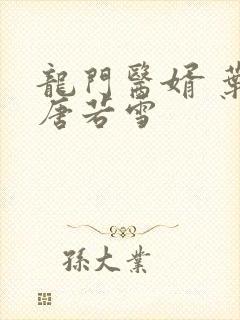 龍門醫婿 葉
唐若雪
孫大業